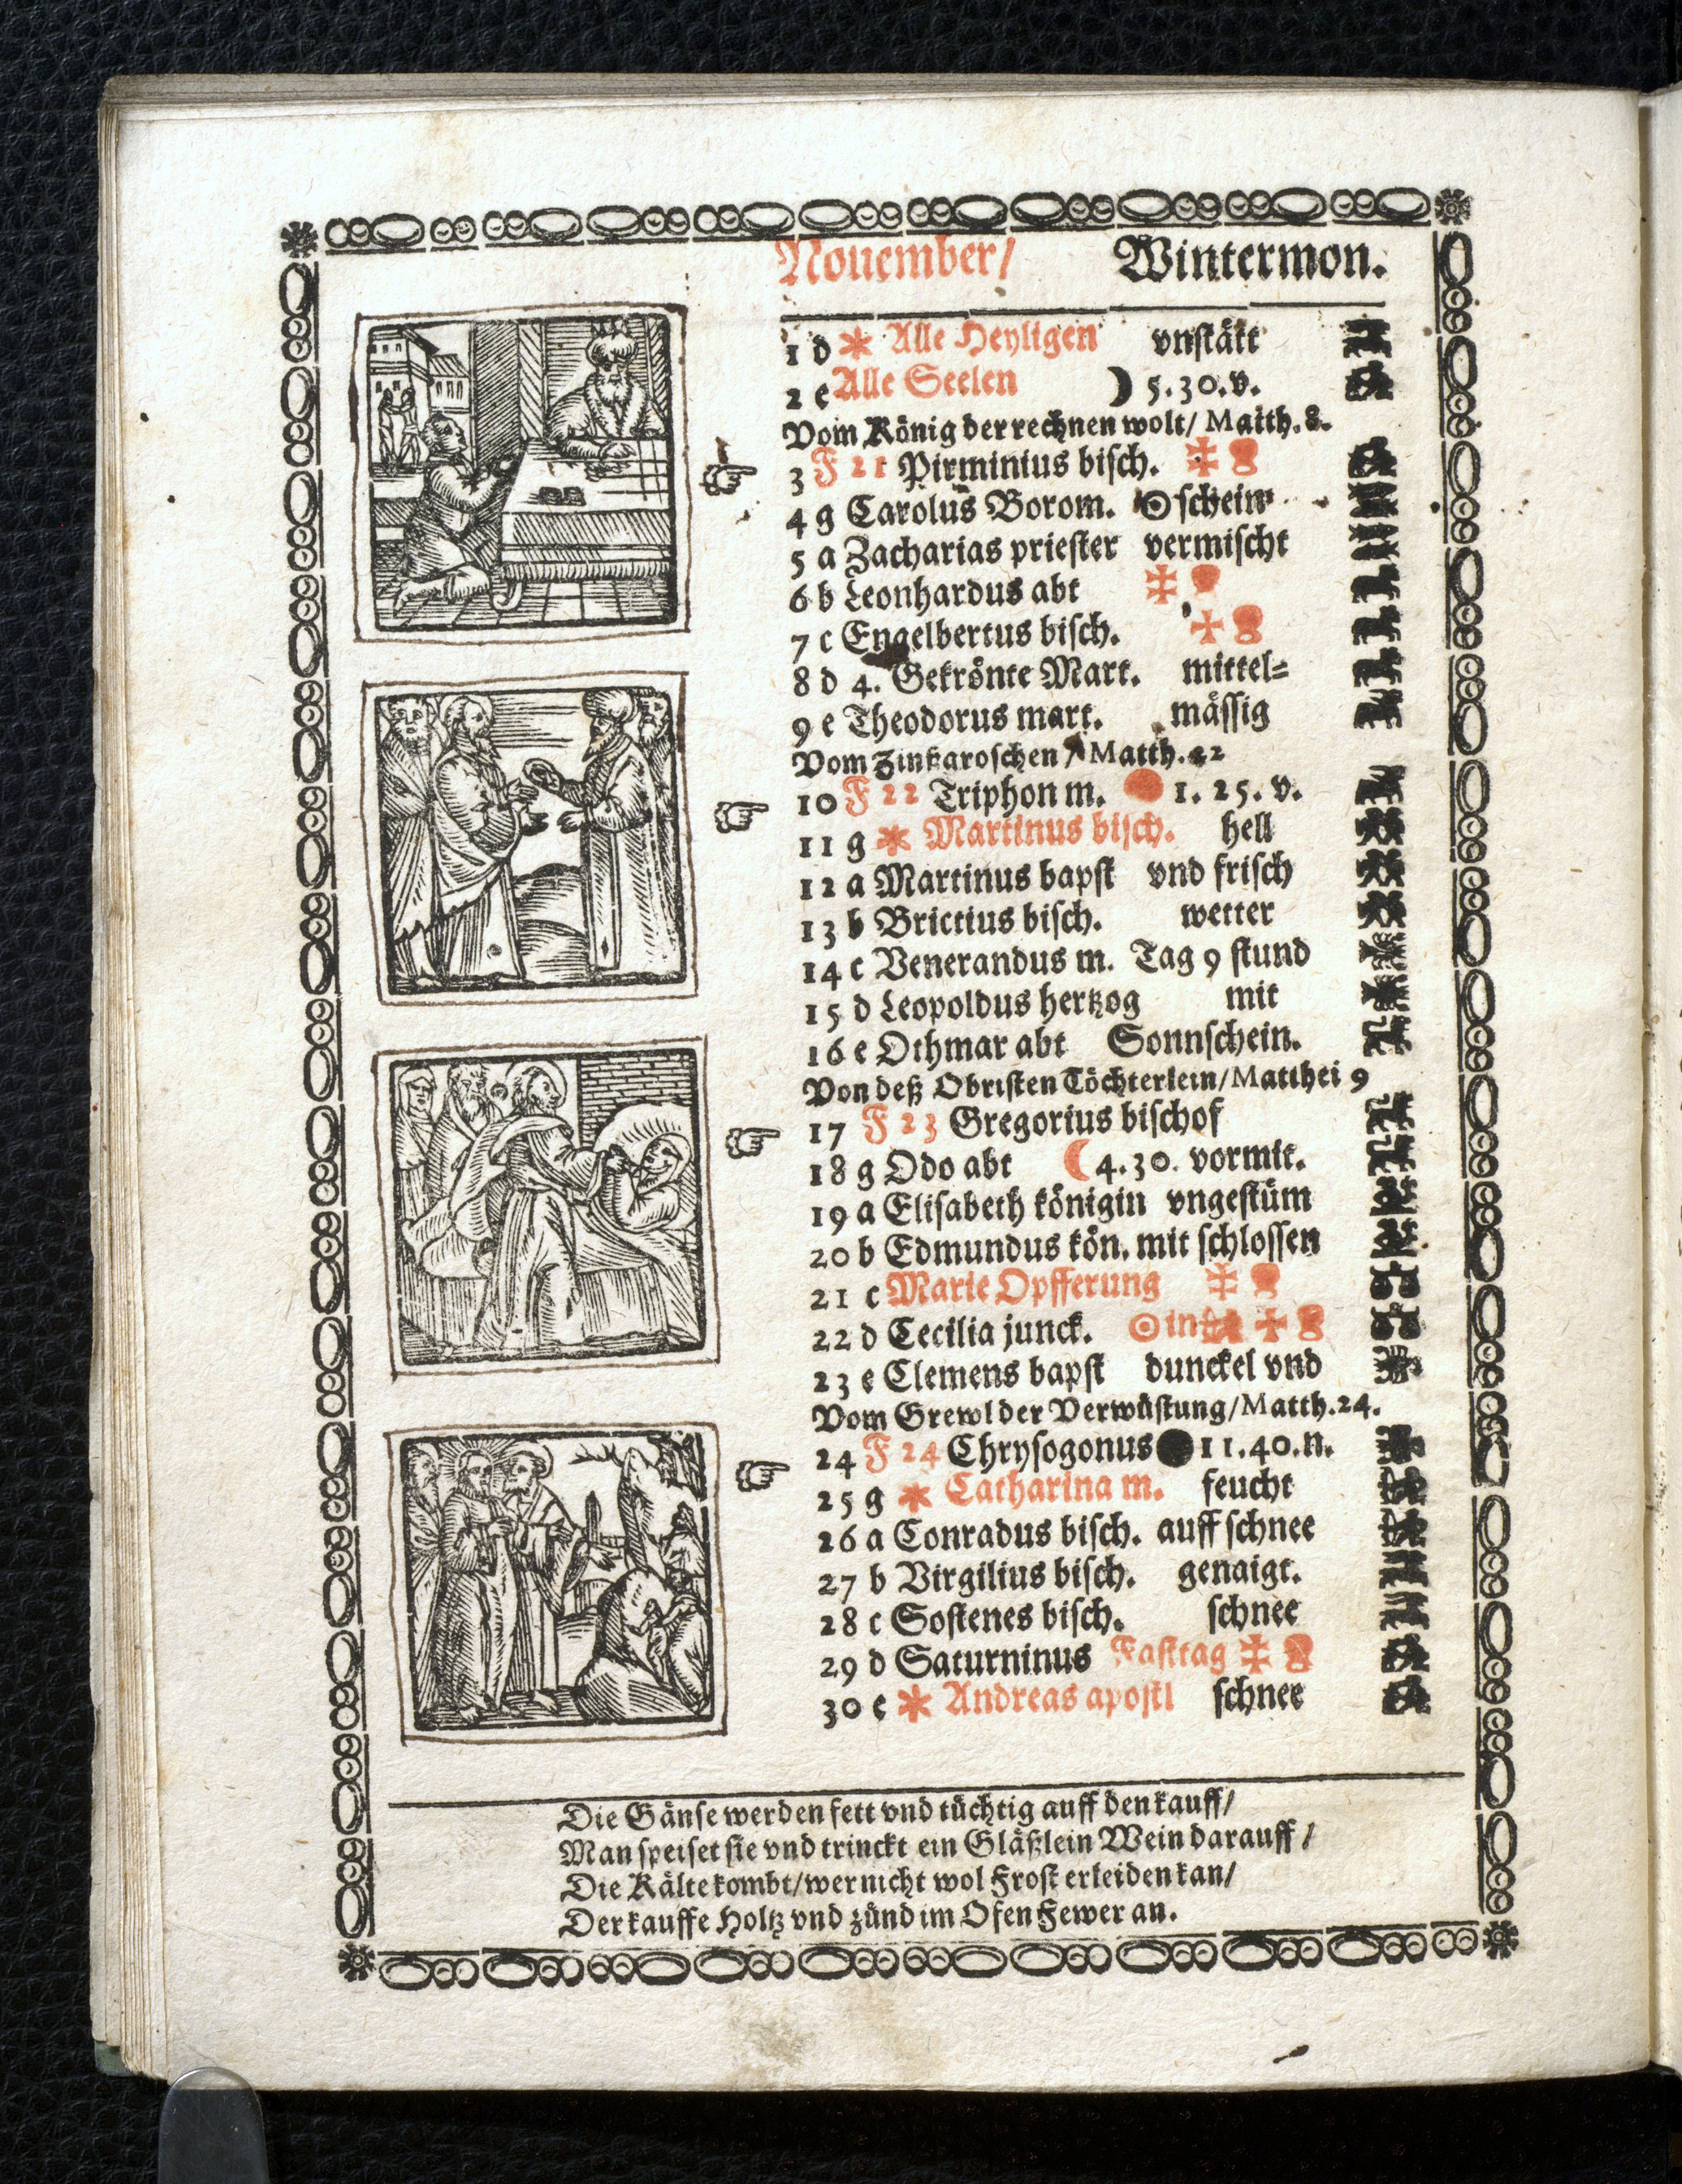 Nouember/ Wintermon.
1 d * Alle Heyligen vnstätt
2 e Alle Seelen ☽ 5.30.v.
Vom König der rechnen wolt/ Matth. 8.
3 F 21 Pirminius bisch.
4 g Carolus Borom. ☉ schein
5 a Zacharias priester vermischt
6 b Leonhardus abt
7 c Engelbertus bisch.
8 d 4. Gekrönte Mart. mittel=
9 e Theodorus mart. mässig
Vom Zinßgroschen / Matth. 22
10 F 22 Triphon m. 1. 25. v.
11 g * Martinus bisch. hell
12 a Martinus bapst vnd frisch
13 b Brictius bisch. wetter
14 c Venerandus m. Tag 9 stund
15 d Leopoldus hertzog mit
16 e Othmar abt Sonnschein.
Von deß Obristen Töchterlein/ Matthei 9
17 F 23 Gregorius bischof
18 g Odo abt ☾ 4.30. vormit.
19 a Elisabeth königin vngestüm
20 b Edmundus kön. mit schlossen
21 c Marie Opfferung
22 d Cecilia junck. ☉ in
23 e Clemens bapst dunckel vnd
Vom Grewl der Verwüstung/ Matth. 24.
24 F 24 Chrysogonus ● 11.40.n.
25 g * Catharina m. feucht
26 a Conradus bisch. auff schnee
27 b Virgilius bisch. genaigt.
28 c Sostenes bisch. schnee
29 d Saturninus Fasttag
30 e * Andreas apostl schnee
Die Gänse werden fett vnd tüchtig auff den kauff/
Man speiset sie vnd trinckt ein Gläßlein Wein darauff/
Die Kälte kombt/ wer nicht wol Frost erleiden kan/
Der kauffe Holtz vnd zünd im Ofen Fewer an.